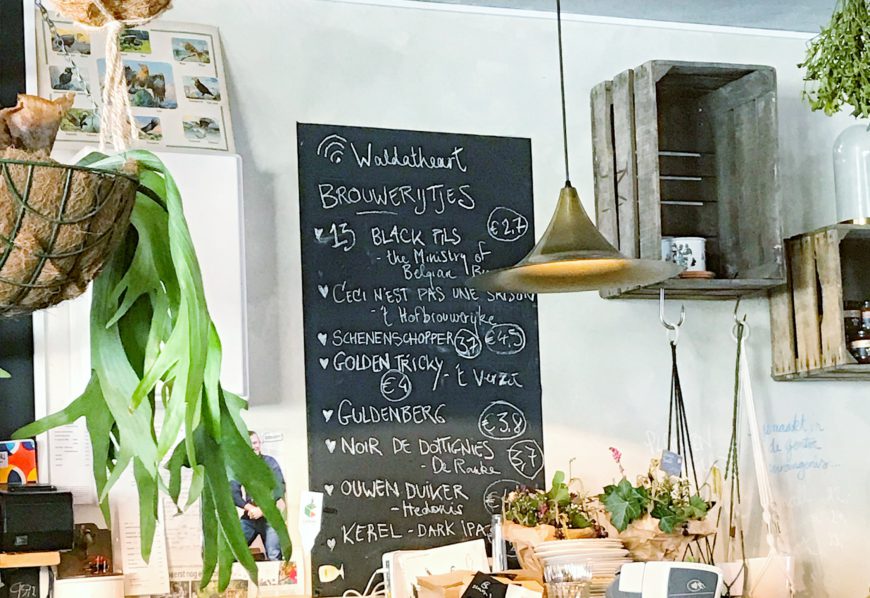 Waldatheart
BROUWERIJTJES
13 BLACK PILS €2,7
- the Ministry of
Belgian
CECI N'EST PAS UNE SAISON
- 't Hofbrouwerijke
SCHENENSCHOPPER 37 €4,5
GOLDEN TRICKY - 't Verzet
€4
GULDENBERG €3.8
NOIR DE DOTTIGNIES
- De Ranke
OUWEN DUIKER
- Hedonis
KEREL - DARK IPA